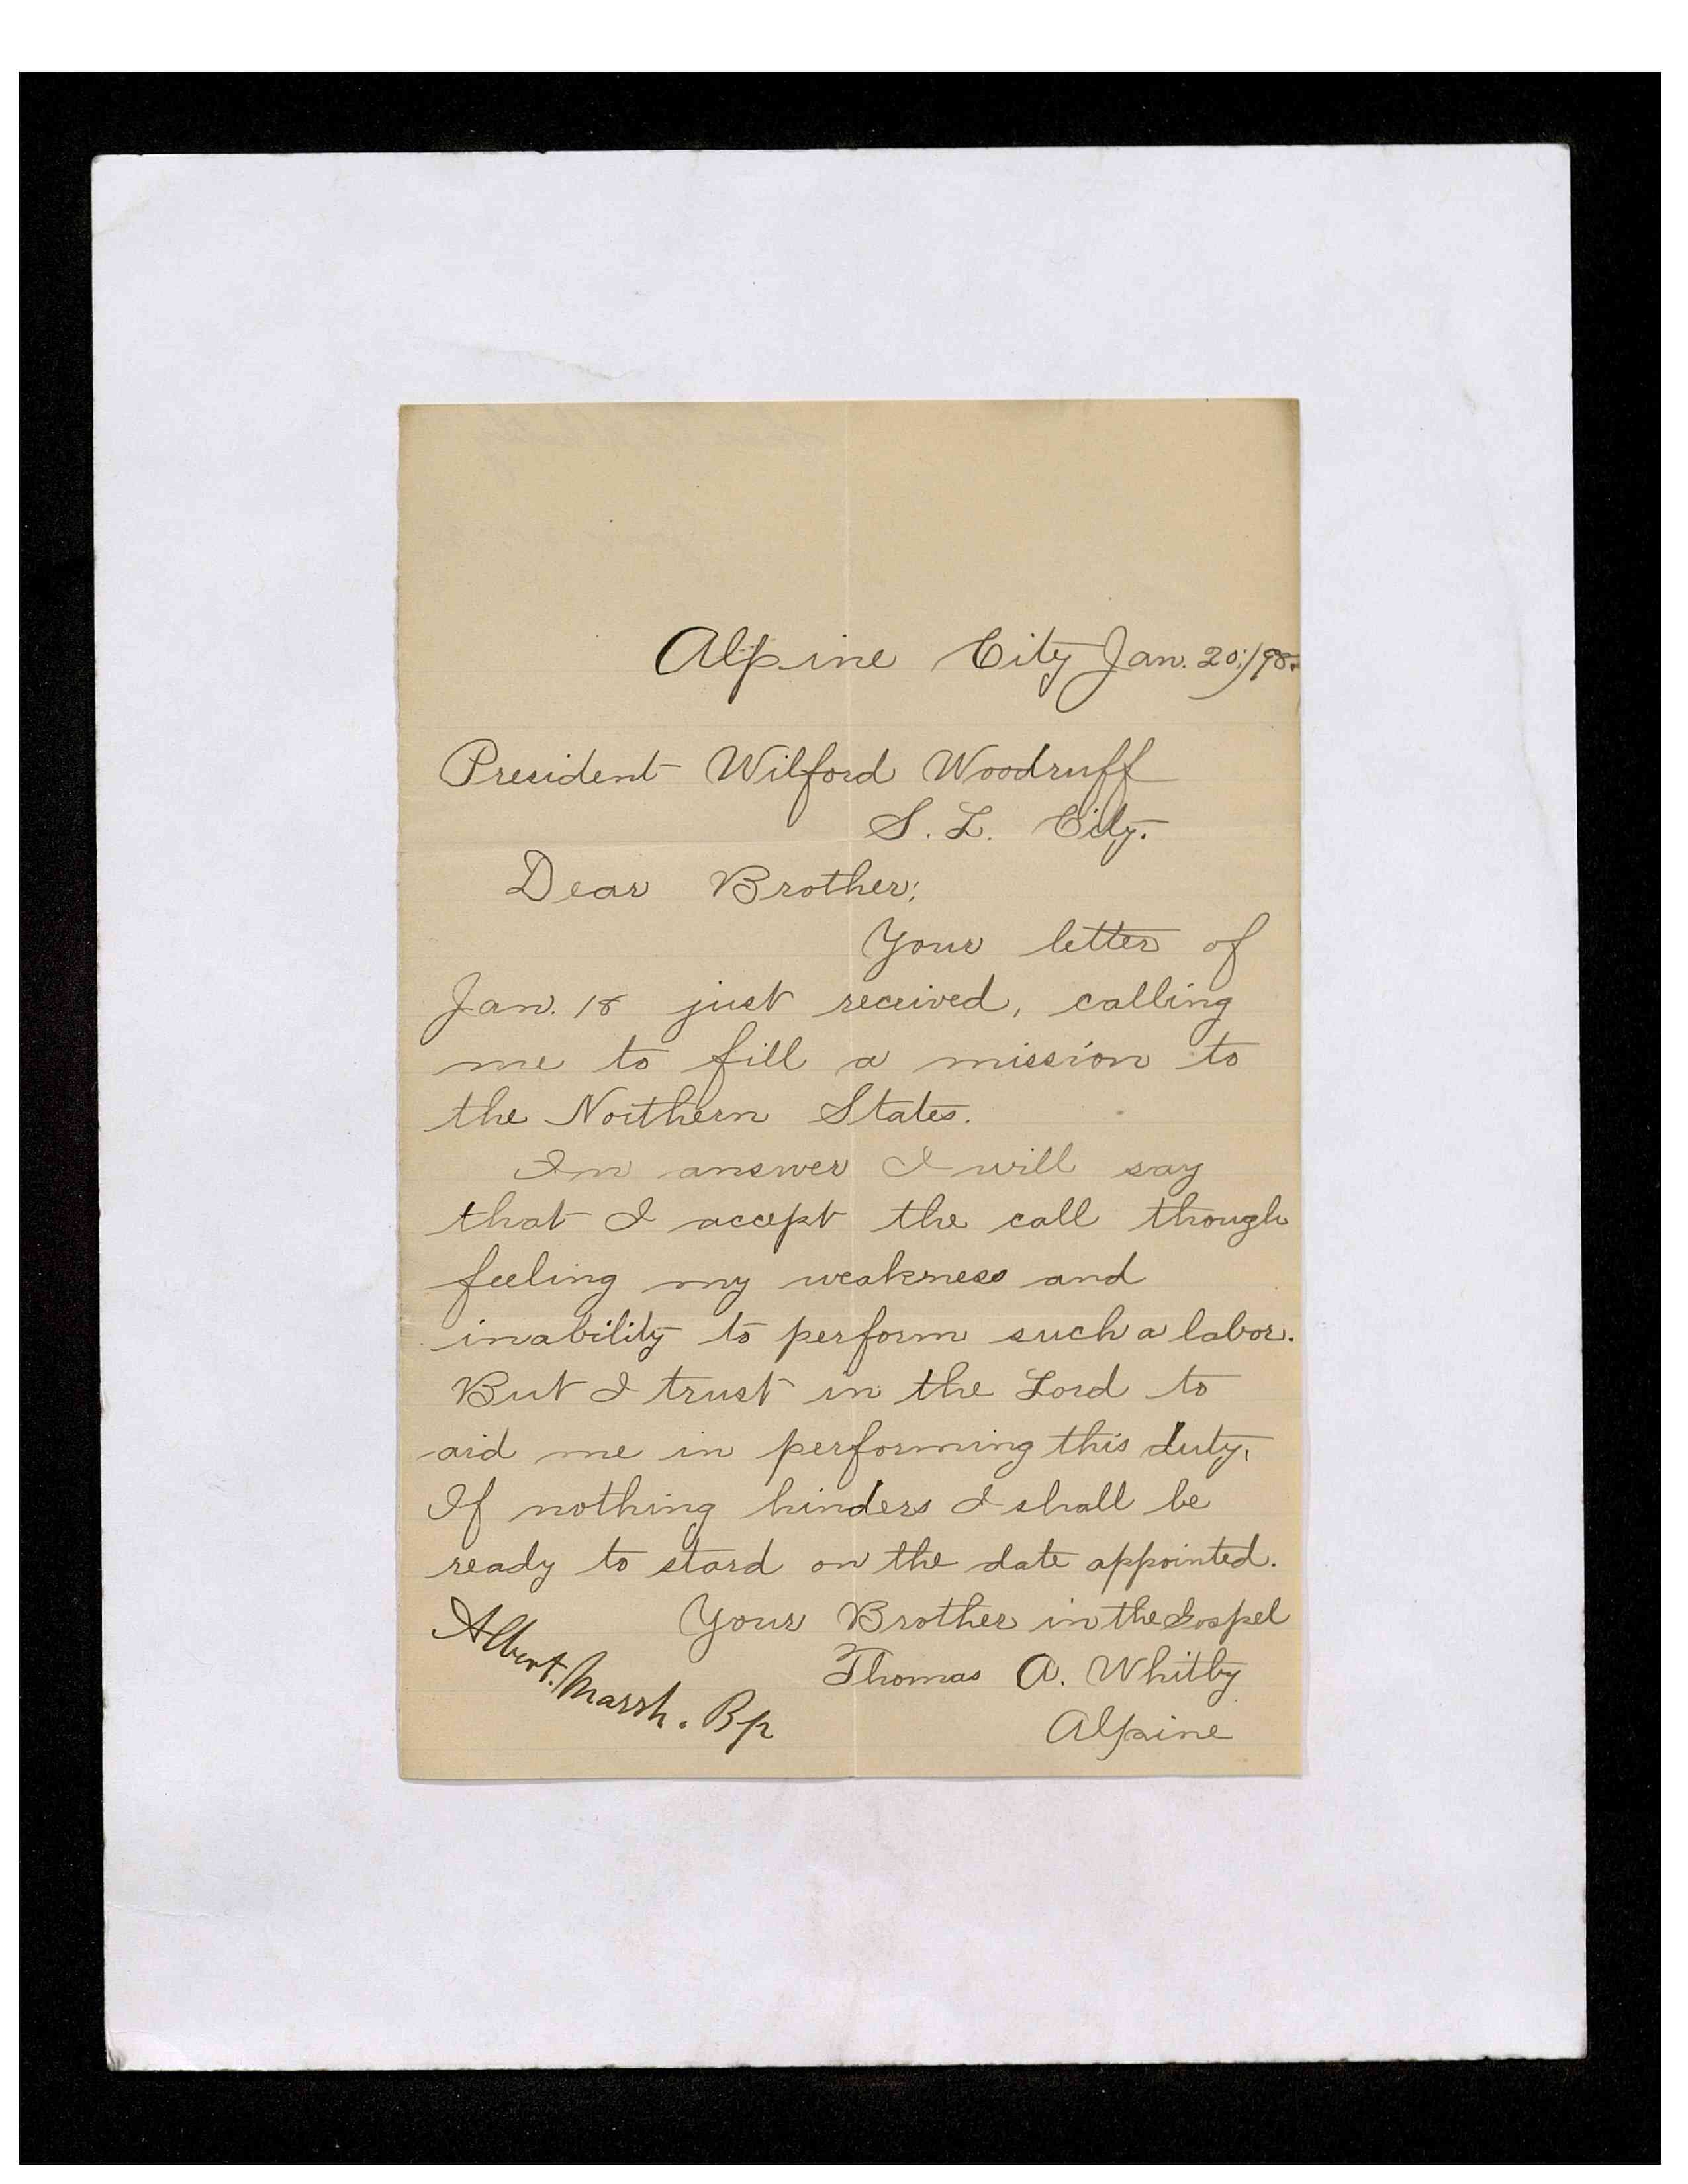 Alpine City Jan. 20,/98.
President Wilford Woodruff
S. L. City.
Dear Brother;
Your letter of
Jan. 18 just received, calling
me to fill a mission to
the Northern States.
In answer I will say
that I accept the call though
feeling my weakness and
inability to perform such a labor.
But I trust in the Lord to
aid me in performing this duty,
If nothing hinders I shall be
ready to stard on the date appointed.
Your Brother in the Gospel
Thomas A. Whitby
Alpine
Albert. Marsh. Bp